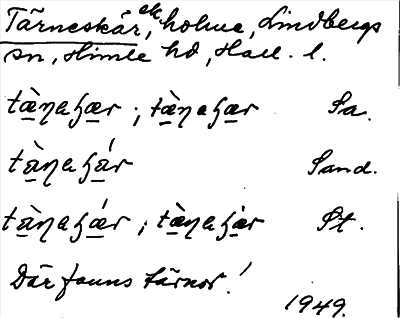 Tärneskär, sk, holme, Lindbergs
sn, Himle hd, Hall. l.
tæ̀ŋeʃær ; tæ̀ŋeʃær Sa.
tæ̀ŋeʃǽr Sand.
tæ̀ŋeʃǽr ; tæ̀ŋeʃær St.
Där fanns tärnor!
1949.